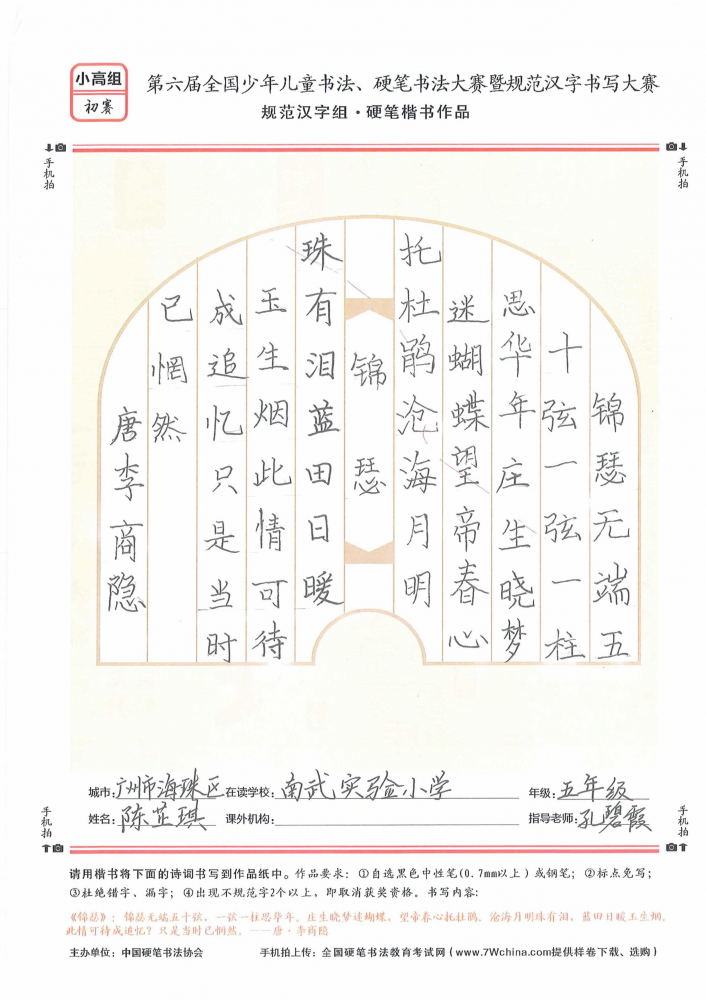 小高组
初赛
第六届全国少年儿童书法、硬笔书法大赛暨规范汉字书写大赛
规范汉字组·硬笔楷书作品
手机拍
手机拍
锦瑟无端五
十弦一弦一柱
思华年庄生晓梦
迷蝴蝶望帝春心
托杜鹃沧海月明
锦瑟
珠有泪蓝田日暖
玉生烟此情可待
成追忆只是当时
已惘然
唐李商隐
城市:广州市海珠区 在读学校:南武实验小学 年级:五年级
姓名:陈芷琪 课外机构: 指导老师:孔碧霞
手机拍
手机拍
请用楷书将下面的诗词书写到作品纸中。作品要求:①自选黑色中性笔(0.7mm以上)或钢笔;②标点免写;
③杜绝错字、漏字;④出现不规范字2个以上,即取消获奖资格。书写内容:
《锦瑟》:锦瑟无端五十弦,一弦一柱思华年。庄生晓梦迷蝴蝶,望帝春心托杜鹃。沧海月明珠有泪,蓝田日暖玉生烟。
此情可待成追忆?只是当时已惘然。——唐·李商隐
主办单位:中国硬笔书法协会 手机拍上传:全国硬笔书法教育考试网(www.7Wchina.com提供样卷下载、选购)